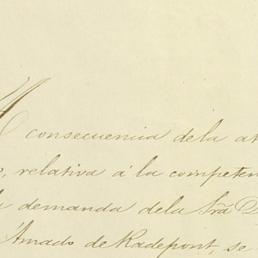 A consecuencia de la
relativa á la
demanda dela Sra
Amado de Radepont, se